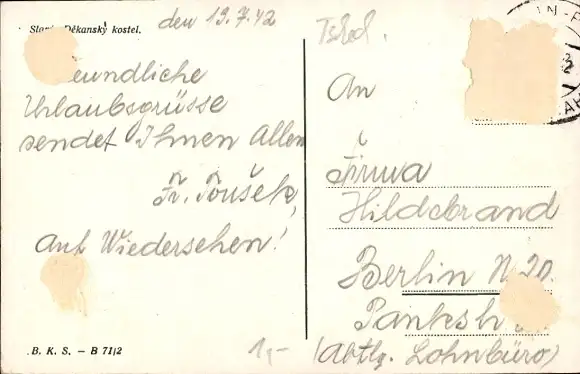 Děkanský kostel.
den 13.7.42
Urlaubsgrüsse
sendet Ihnen Allen
Fr. Toušek,
Auf Wiedersehen!
B. K. S. – B 71/2
1,-
An
Firma
Hildebrand
Berlin N 20.
(Abtlg. Lohnbüro)